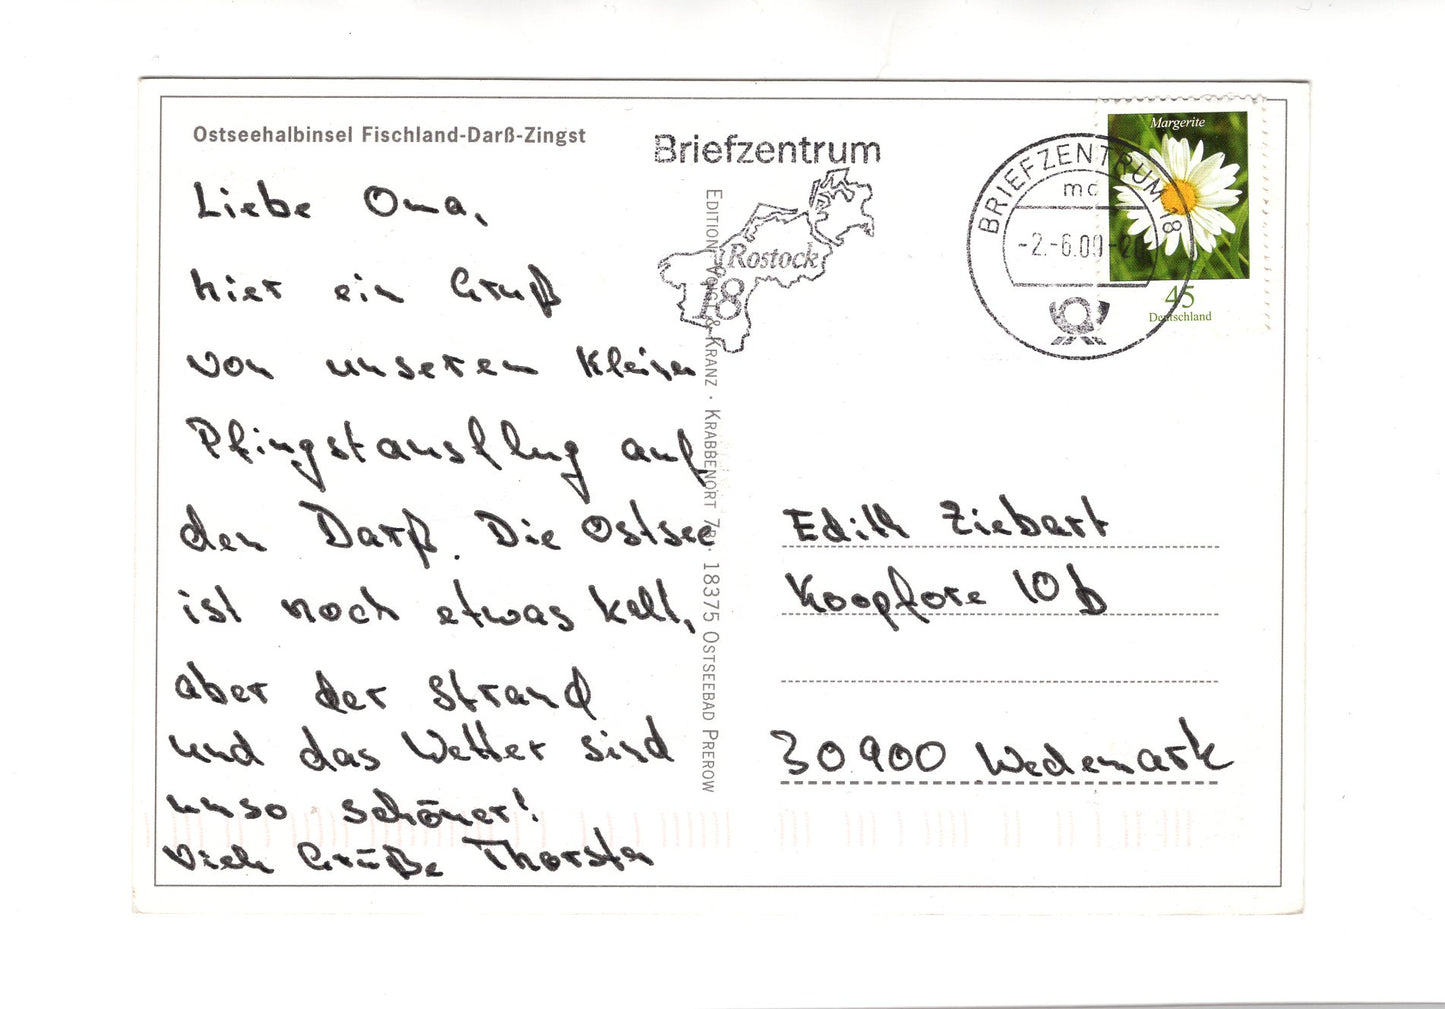 Ostseehalbinsel Fischland-Darß-Zingst
Liebe Oma,
hier ein Gruß
von unserem kleinen
Pfingstausflug auf
den Darß. Die Ostsee
ist noch etwas kalt,
aber der Strand
und das Wetter sind
umso schöner!
Viele Grüße Thorsten
EDITION VOIGT & KRANZ · KRABBENORT 7B · 18375 OSTSEEBAD PREROW
Briefzentrum
Rostock
18
BRIEFZENTRUM 18
mc
-2.-6.09-
Margerite
45
Deutschland
Edith Ziebart
Koopfore 10b
30900 Wedemark